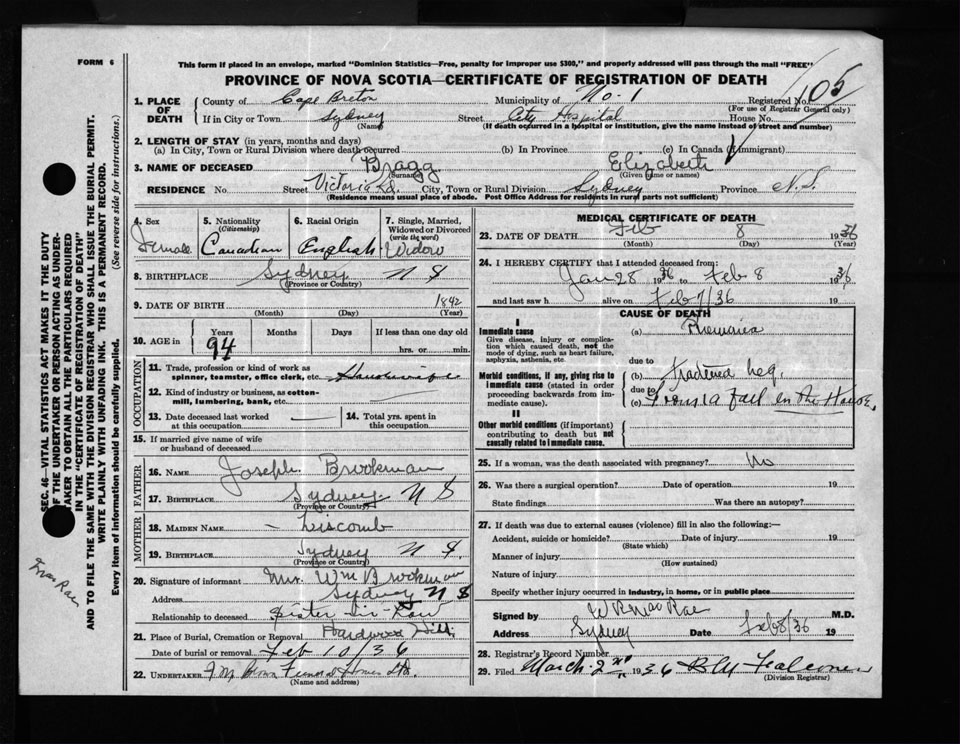 FORM 6
This form if placed in an envelope, marked "Dominion Statistics—Free, penalty for improper use $300," and properly addressed will pass through the mail "FREE"
PROVINCE OF NOVA SCOTIA—CERTIFICATE OF REGISTRATION OF DEATH
SEC. 46—VITAL STATISTICS ACT MAKES IT THE DUTY
OF THE UNDERTAKER OR PERSON ACTING AS UNDER-
TAKER TO OBTAIN ALL THE PARTICULARS REQUIRED
IN THE "CERTIFICATE OF REGISTRATION OF DEATH"
AND TO FILE THE SAME WITH THE DIVISION REGISTRAR WHO SHALL ISSUE THE BURIAL PERMIT.
WRITE PLAINLY WITH UNFADING INK. THIS IS A PERMANENT RECORD.
Every item of information should be carefully supplied. (See reverse side for instructions.)
1. PLACE OF DEATH
County of Cape Breton Municipality of No. 1 Registered No. 105
(For use of Registrar General only)
If in City or Town Sydney Street City Hospital House No.
(Name) (If death occurred in a hospital or institution, give the name instead of street and number)
2. LENGTH OF STAY (in years, months and days)
(a) In City, Town or Rural Division where death occurred (b) In Province (c) In Canada (if immigrant)
3. NAME OF DECEASED Bragg Elizabeth
(Surname) (Given name or names)
RESIDENCE No Street Victoria Rd. City, Town or Rural Division Sydney Province N.S.
(Residence means usual place of abode. Post Office Address for residents in rural parts not sufficient)
4. Sex Female
5. Nationality (Citizenship) Canadian
6. Racial Origin English
7. Single, Married, Widowed or Divorced (write the word) Widow
8. BIRTHPLACE Sydney N S
(Province or Country)
9. DATE OF BIRTH 1842
(Month) (Day) (Year)
10. AGE in Years 94 Months Days If less than one day old
hrs. or min.
OCCUPATION
11. Trade, profession or kind of work as
spinner, teamster, office clerk, etc. Housewife
12. Kind of industry or business, as cotton-
mill, lumbering, bank, etc.
13. Date deceased last worked
at this occupation
14. Total yrs. spent in
this occupation
15. If married give name of wife
or husband of deceased
FATHER
16. NAME Joseph Brookman
17. BIRTHPLACE Sydney N S
(Province or Country)
MOTHER
18. MAIDEN NAME – Liscomb
19. BIRTHPLACE Sydney N S.
(Province or Country)
20. Signature of informant Mrs. Wm Brookman
Address Sydney N S
Relationship to deceased Sister-in-Law
21. Place of Burial, Cremation or Removal Hardwood Hill
Date of burial or removal Feb 10/36
22. UNDERTAKER Funeral Home Ltd.
(Name and address)
MEDICAL CERTIFICATE OF DEATH
23. DATE OF DEATH Feb 8 1936
(Month) (Day) (Year)
24. I HEREBY CERTIFY that I attended deceased from:
Jan 28 1936 to Feb 8 1936
and last saw h alive on Feb 7/36 19
CAUSE OF DEATH
I
Immediate cause
Give disease, injury or complica-
tion which caused death, not the
mode of dying, such as heart failure,
asphyxia, asthenia, etc.
(a)
due to
Morbid conditions, if any, giving rise to
immediate cause (stated in order
proceeding backwards from im-
mediate cause).
(b) Fractured Leg.
due to
(c) From a fall in the House.
II
Other morbid conditions (if important)
contributing to death but not
causally related to immediate cause.
25. If a woman, was the death associated with pregnancy? No
26. Was there a surgical operation? Date of operation 19
State findings Was there an autopsy?
27. If death was due to external causes (violence) fill in also the following:—
Accident, suicide or homicide? Date of injury 19
(State which)
Manner of injury
(How sustained)
Nature of injury
Specify whether injury occurred in industry, in home, or in public place
Signed by MacRae M.D.
Address Sydney Date Feb 8/36 19
28. Registrar's Record Number
29. Filed March 2nd 1936 Falconer
(Division Registrar)